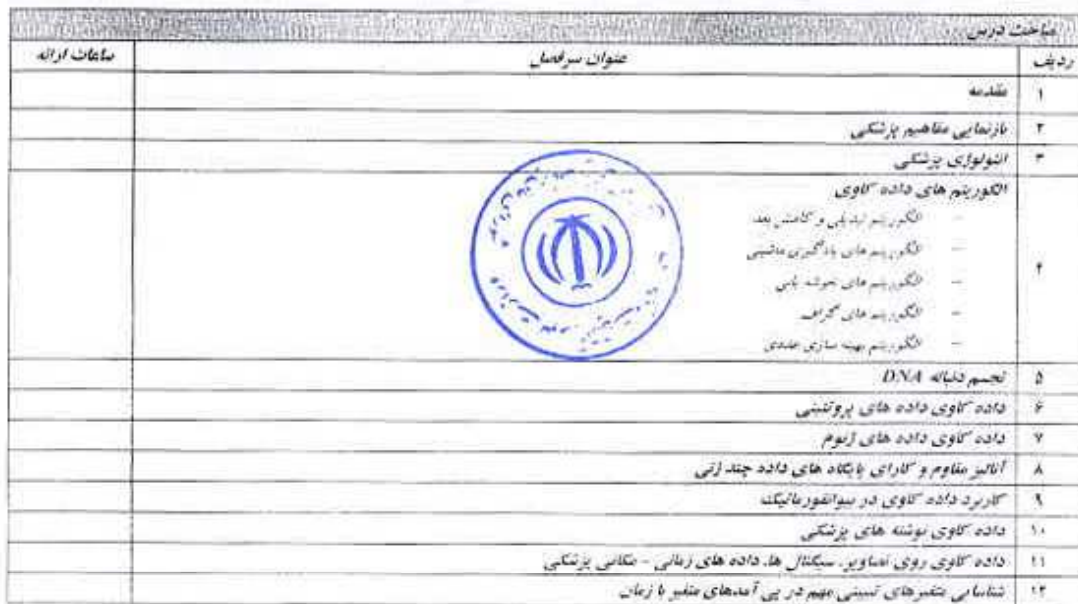 مباحث درس
ردیف عنوان سرفصل ساعات ارائه
۱ مقدمه
۲ بازنمایی مفاهیم پزشکی
۳ انتولوژی پزشکی
۴ الگوریتم های داده کاوی
– الگوریتم تبدیلی و کاهش بعد
– الگوریتم های یادگیری ماشینی
– الگوریتم های خوشه یابی
– الگوریتم های گراف
– الگوریتم بهینه سازی عددی
۵ تجسم دنباله DNA
۶ داده کاوی داده های پروتئینی
۷ داده کاوی داده های ژنوم
۸ آنالیز مقاوم و کارای پایگاه های داده چند ژنی
۹ کاربرد داده کاوی در بیوانفورماتیک
۱۰ داده کاوی نوشته های پزشکی
۱۱ داده کاوی روی تصاویر، سیگنال ها، داده های زمانی - مکانی پزشکی
۱۲ شناسایی متغیرهای تبیینی مهم در پی آمدهای متغیر با زمان